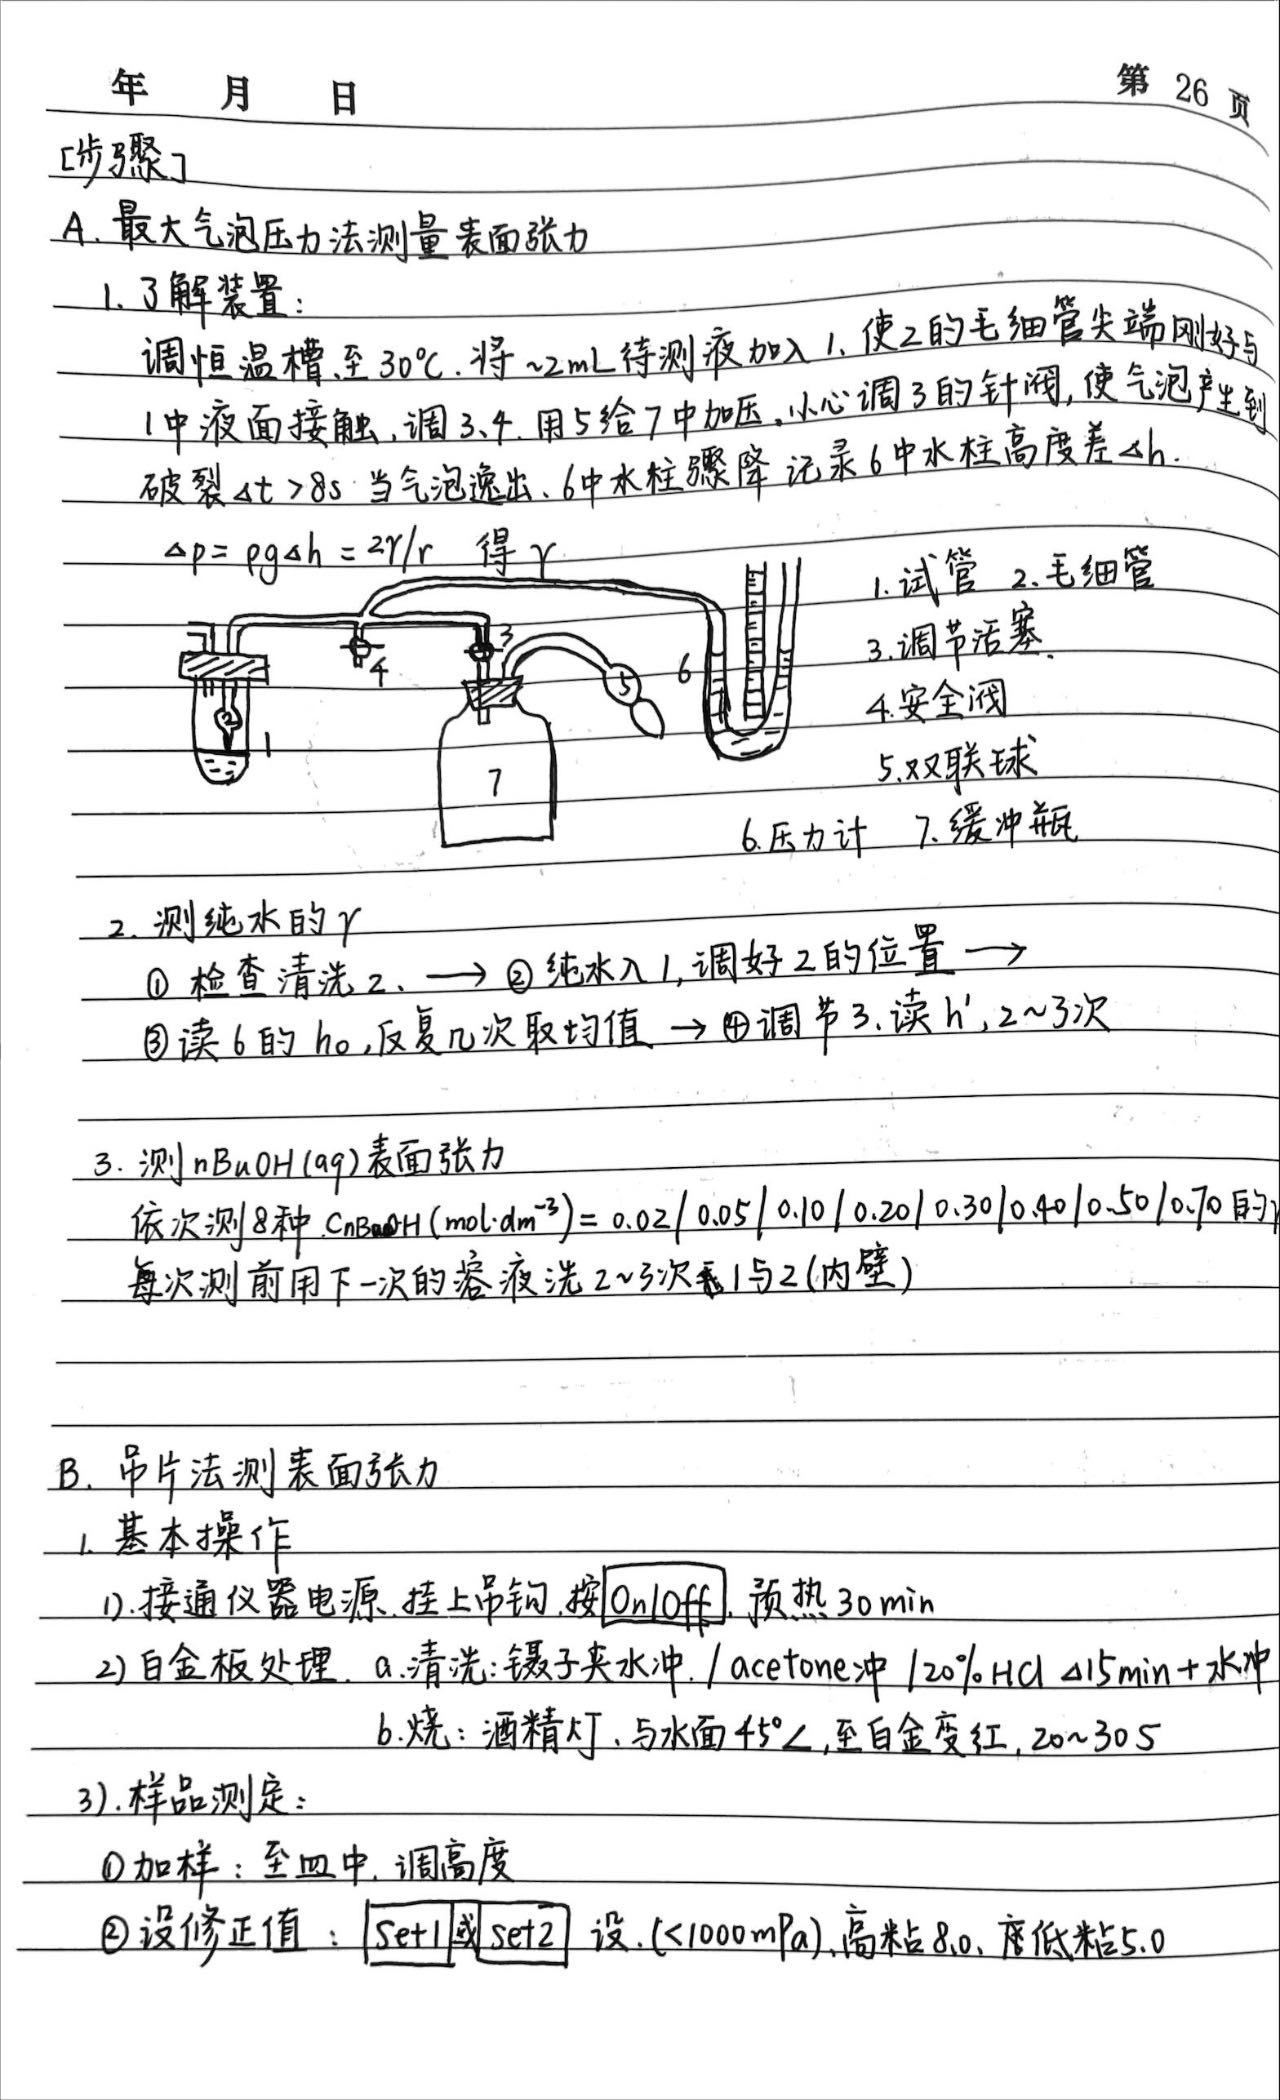 年 月 日 第 26 页
[步骤]
A. 最大气泡压力法测量表面张力
1. 了解装置:
调恒温槽至30℃.将~2mL待测液加入1、使2的毛细管尖端刚好与
1中液面接触、调3、4. 用5给7中加压。小心调3的针阀,使气泡产生到
破裂Δt>8s 当气泡逸出、6中水柱骤降 记录6中水柱高度差Δh.
Δp=ρgΔh=2γ/r 得γ
1.试管 2.毛细管
3.调节活塞.
4.安全阀
5.双联球
6.压力计 7.缓冲瓶
1 2 3 4 5 6 7
2. 测纯水的γ
① 检查清洗2、→ ②纯水入1,调好2的位置 →
③读6的h₀,反复几次取均值 → ④调节3、读h',2~3次
3. 测nBuOH(aq)表面张力
依次测8种 CnBuOH(mol·dm⁻³)=0.02/0.05/0.10/0.20/0.30/0.40/0.50/0.70的γ
每次测前用下一次的溶液洗2~3次 1与2(内壁)
B. 吊片法测表面张力
1. 基本操作
1).接通仪器电源.挂上吊钩.按On/Off, 预热30min
2)白金板处理. a.清洗:镊子夹水冲./acetone冲/20%HCl Δ15min+水冲
b.烧: 酒精灯、与水面45°∠,至白金变红,20~30s
3).样品测定:
①加样:至皿中.调高度
②设修正值: Set1或Set2 设.(<1000mPa)、高粘8.0、低粘5.0